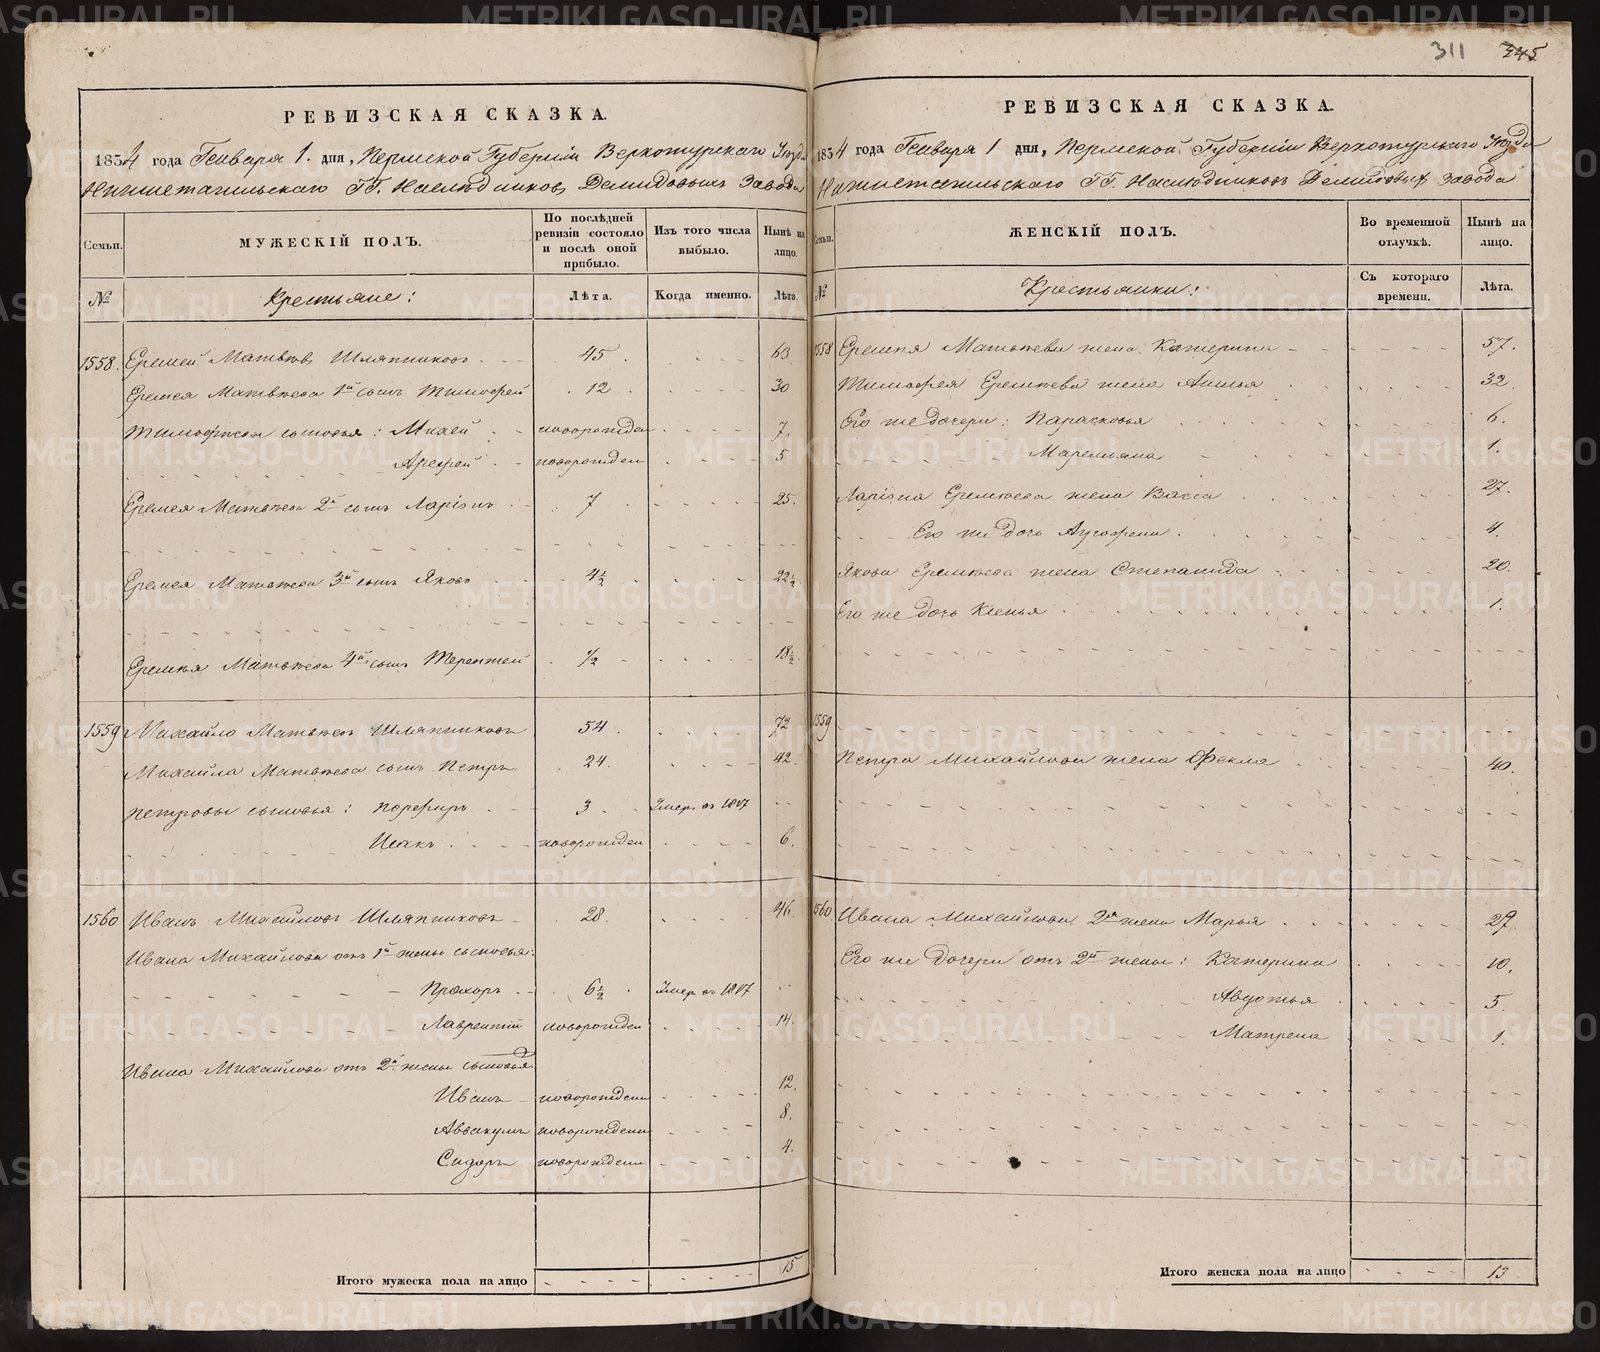 311 345
РЕВИЗСКАЯ СКАЗКА.
1834 года Генваря 1. дня, Пермской Губернiи Верхотурскаго Уѣзда
Нижнетагильскаго ГГ. Наслѣдниковъ Демидовыхъ Завода
Семьи.
МУЖЕСКIЙ ПОЛЪ.
По послѣдней ревизiи состояло и послѣ оной прибыло.
Изъ того числа выбыло.
Нынѣ на лицо.
№
Крестьяне:
Лѣта.
Когда именно.
Лѣта.
1558. Еремей Матвѣевъ Шляпниковъ 45. 63
Еремея Матвѣева 1й сынъ Тимофей 12 30
Тимофѣевы сыновья: Михей новорожден 7.
Арефей новорожден 5
Еремея Матвѣева 2й сынъ Ларiонъ 7 25.
Еремея Матвѣева 3й сынъ Яковъ 4½ 22½
Еремѣя Матвѣева 4й сынъ Терентей ½ 18½
1559 Михайло Матвѣевъ Шляпниковъ 54. 72
Михайла Матвѣева сынъ Петръ 24. 42.
Петровы сыновья: Порфиръ 3 Умер. въ 1817
Исакъ новорожден 6.
1560 Иванъ Михайловъ Шляпниковъ 28. 46.
Ивана Михайлова отъ 1й жены сыновья:
Прохоръ 6½ Умер. въ 1817
Лаврентiй новорожден 14.
Ивана Михайлова отъ 2й жены сыновья
Иванъ новорожденъ 12.
Аввакумъ новорожденъ 8.
Сидоръ новорожденъ 4.
Итого мужеска пола на лицо 15
РЕВИЗСКАЯ СКАЗКА.
1834 года Генваря 1 дня, Пермской Губернiи Верхотурскаго Уѣзда
Нижнетагильскаго ГГ. Наслѣдниковъ Демидовыхъ Завода
Семьи.
ЖЕНСКIЙ ПОЛЪ.
Во временной отлучкѣ.
Нынѣ на лицо.
№
Крестьянки:
Съ котораго времени.
Лѣта.
1558 Еремѣя Матвѣева жена Катерина 57.
Тимофея Еремѣева жена Анисья 32.
Его же дочери: Парасковья 6.
Маремьяна 1.
Ларiона Еремѣева жена Васса 27.
Его же дочь Аграфена 4.
Якова Еремѣева жена Степанида 20.
Его же дочь Ксенья 1.
1559
Петра Михайлова жена Фекла 40.
1560 Ивана Михайлова 2я жена Марья 29.
Его же дочери отъ 2й жены: Катерина 10.
Авдотья 5.
Матрена 1.
Итого женска пола на лицо 13
METRIKI.GASO-URAL.RU